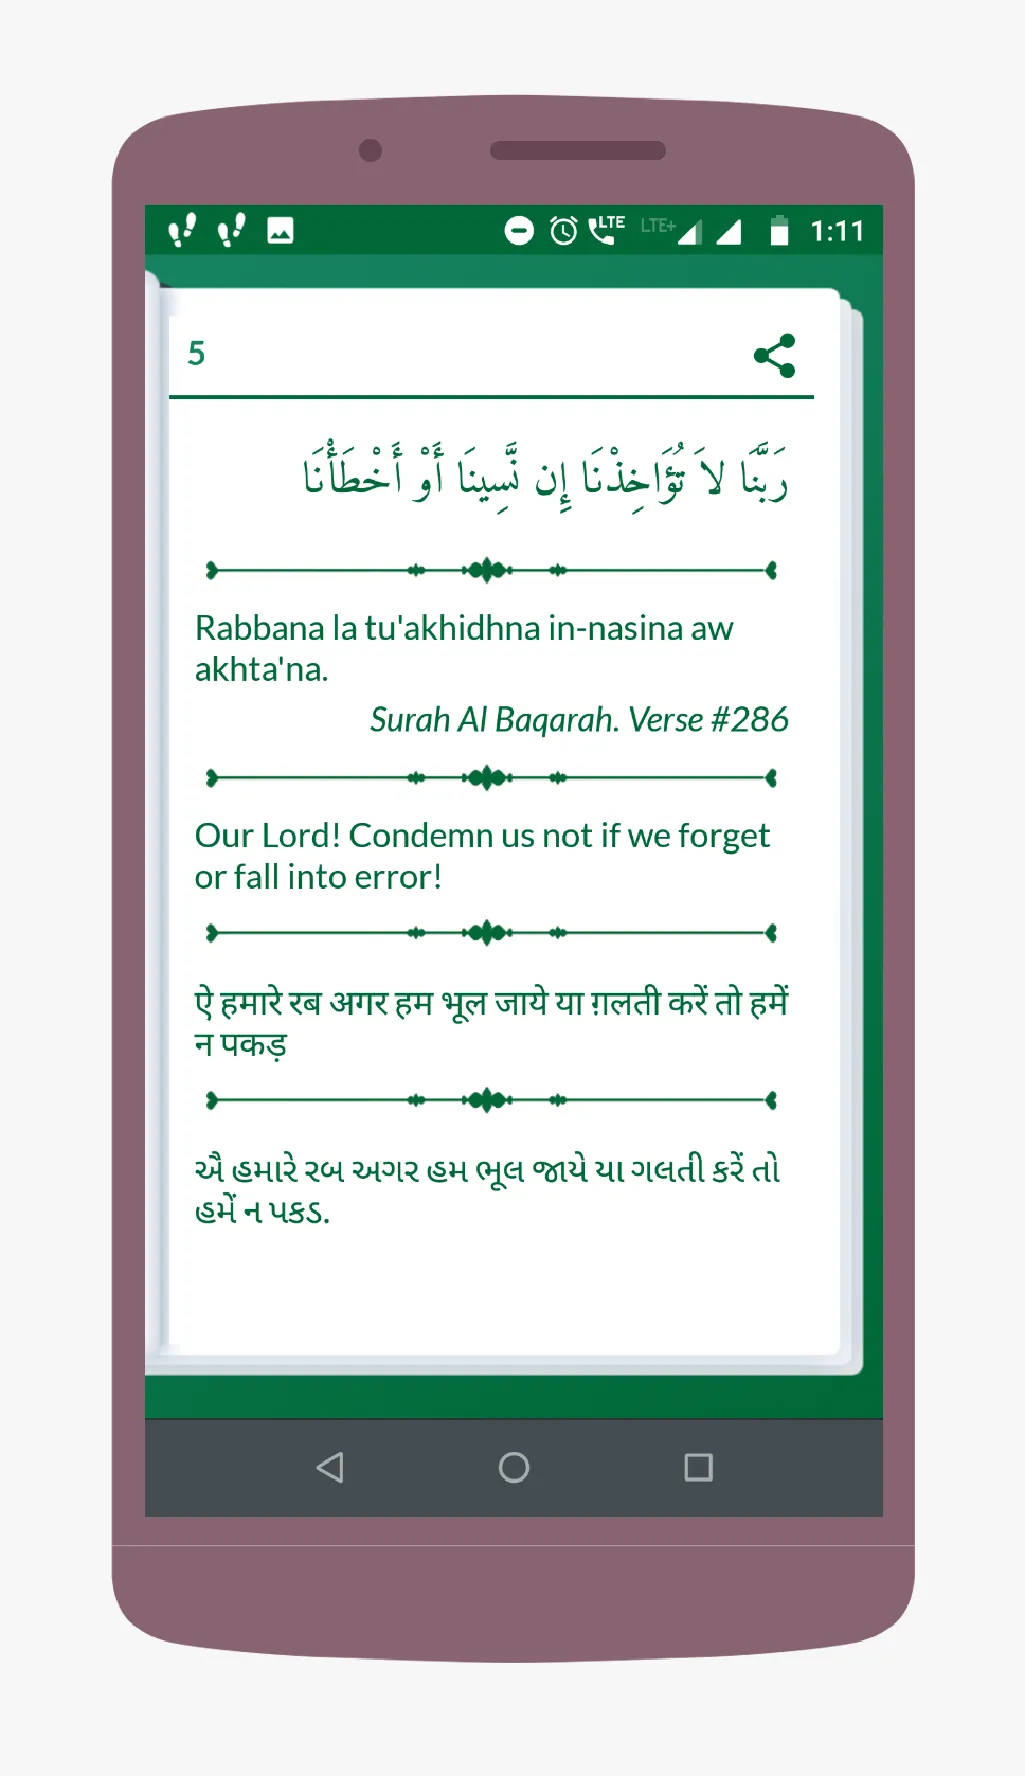 LTE LTE+ 1:11
5
رَبَّنَا لاَ تُؤَاخِذْنَا إِن نَّسِينَا أَوْ أَخْطَأْنَا
Rabbana la tu'akhidhna in-nasina aw
akhta'na.
Surah Al Baqarah. Verse #286
Our Lord! Condemn us not if we forget
or fall into error!
ऐ हमारे रब अगर हम भूल जाये या ग़लती करें तो हमें
न पकड़
ઐ હમારે રબ અગર હમ ભૂલ જાયે યા ગલતી કરેં તો
હમેં ન પકડ.